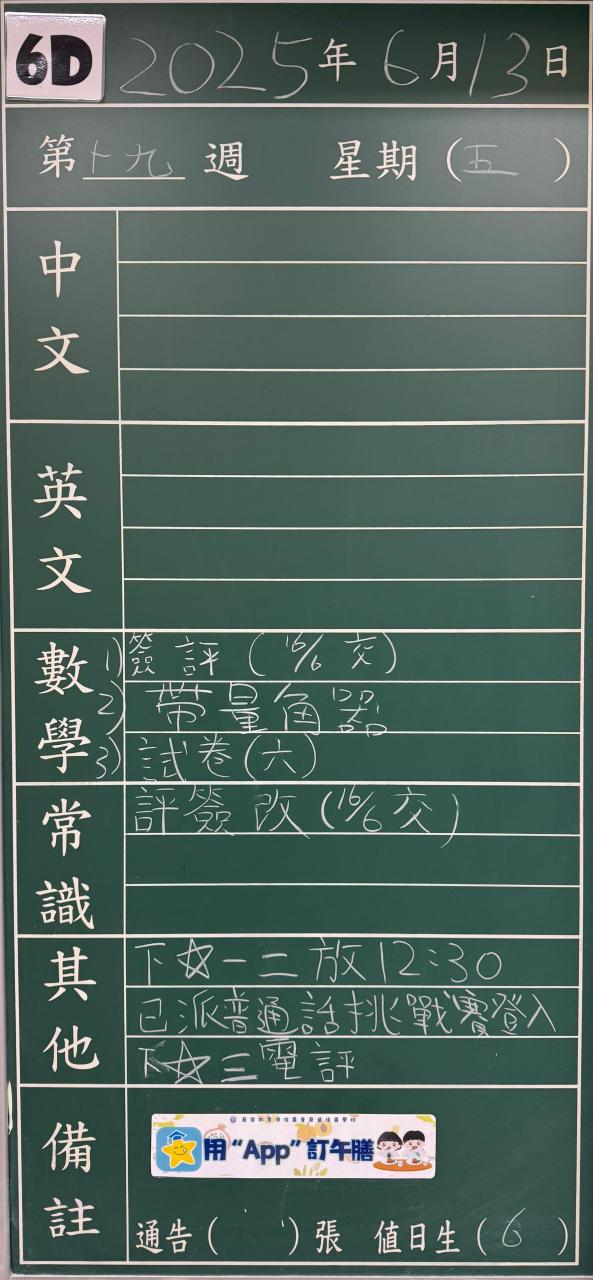 6D 2025年6月13日
第十九週 星期(五)
中文
英文
數學
1) 簽評(16/6交)
2) 帶量角器
3) 試卷(六)
常識
評簽改(16/6交)
其他
下☆一二放12:30
已派普通話挑戰賽登入
下☆三電評
備註
用“App”訂午膳
通告( )張 值日生(6)